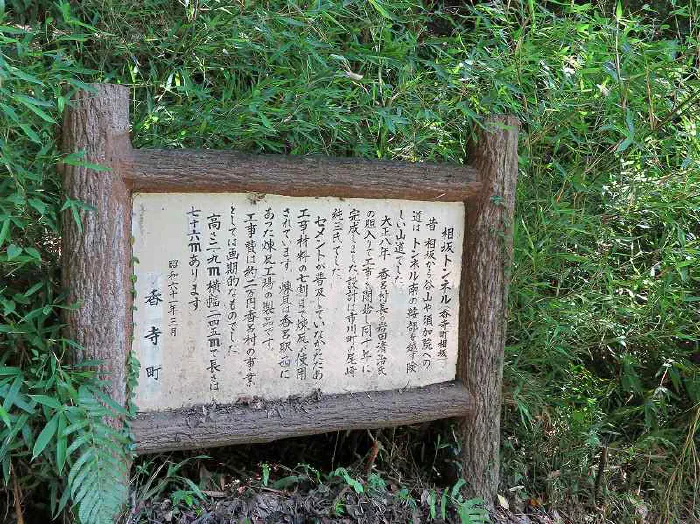 相坂トンネル 香寺町相坂
昔 相坂から谷山や須加院への
道は トンネル南の峰部を越す険
しい山道でした
大正八年 香呂村長の岩田清治氏
の肝入りで工事を開始し同十年に
完成しました 設計は市川町の尾崎
純三氏でした。
セメントが普及していなかったため
工事材料の七割まで煉瓦が使用
されています。煉瓦は香呂駅西に
あった煉瓦工場の製品です。
工事費は約二万円香呂村の事業
としては画期的なものでした
高さ三・九m 横幅二・四五mで長さは
七十六mあります
昭和六十一年三月
香寺町